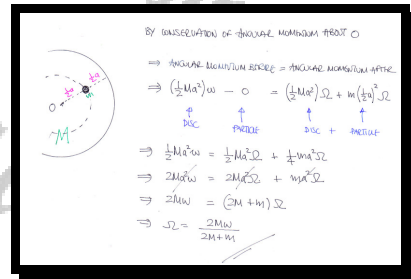 BY CONSERVATION OF ANGULAR MOMENTUM ABOUT O
⇒ ANGULAR MOMENTUM BEFORE = ANGULAR MOMENTUM AFTER
⇒ (½Ma²)ω − 0 = (½Ma²)Ω + m(½a)²Ω
DISC PARTICLE DISC + PARTICLE
⇒ ½Ma²ω = ½Ma²Ω + ¼ma²Ω
⇒ 2Ma²ω = 2Ma²Ω + ma²Ω
⇒ 2Mω = (2M + m)Ω
⇒ Ω = 2Mω / 2M+m
½a
½a
m
O
M